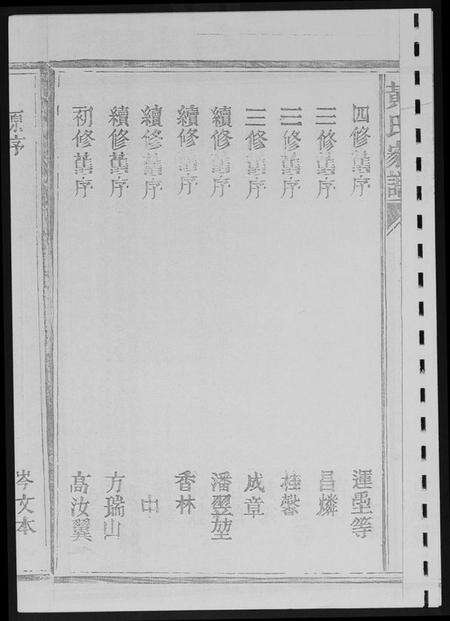 彭氏家譜
四修舊序 運亟等
三修舊序 呂燐
三修舊序 桂馨
三修舊序 咸章
續修舊序 潘翌堃
續修舊序 香林
續修舊序 中
續修舊序 方瑞山
初修舊序 高汝翼
原序 岑文本